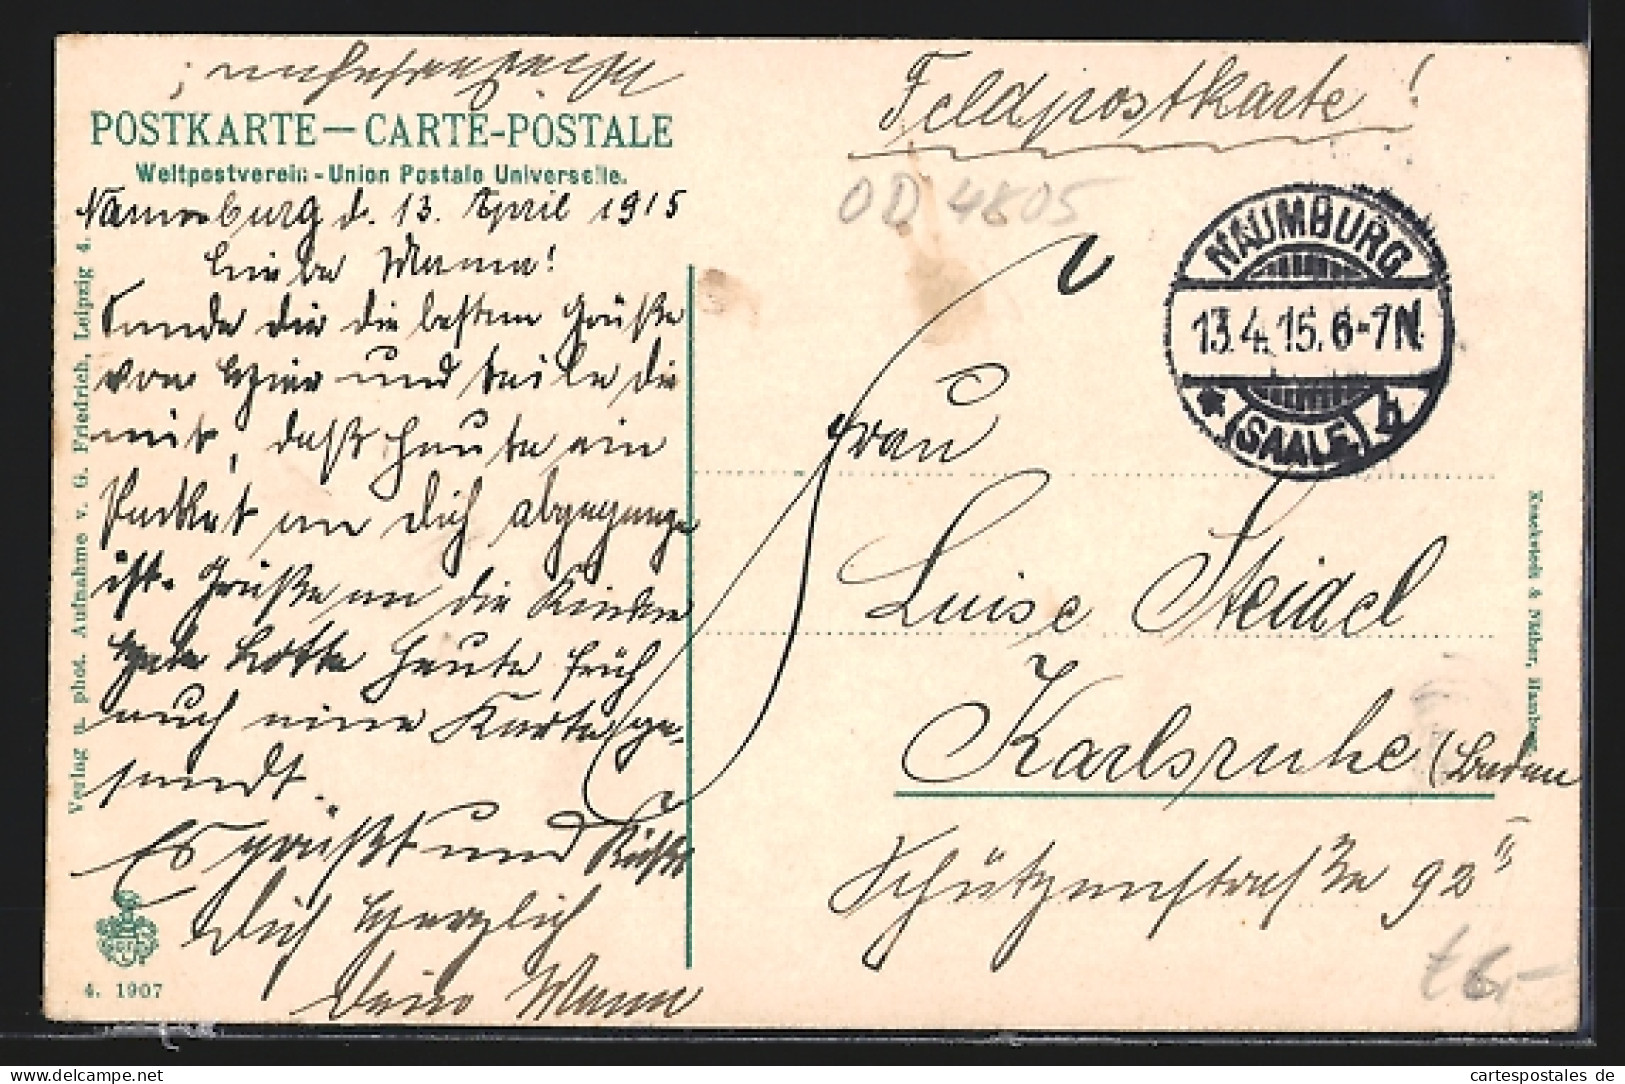 POSTKARTE — CARTE-POSTALE
Weltpostverein - Union Postale Universelle.
Naumburg d. 13. April 1915
Liebe Mama!
Sende dir die besten Grüße
von hier und teile dir
mit, daß heute ein
Packet an dich abgegangen
ist. Grüße an die Kinder
habe Lotte heute früh
auch eine Karte ge-
sandt.
Es grüßt und küßt
Dich herzlich
Dein Mann
4. 1907
Verlag u. phot. Aufnahme v. G. Friedrich, Leipzig 4.
Feldpostkarte!
OD 4805
NAUMBURG
13.4.15.6-7N.
* (SAALE) b
Frau
Luise Steidel
Karlsruhe (Baden
Schützenstraße 92 II
Knackstedt & Näther, Hamburg.
t 6,-
cartespostales de